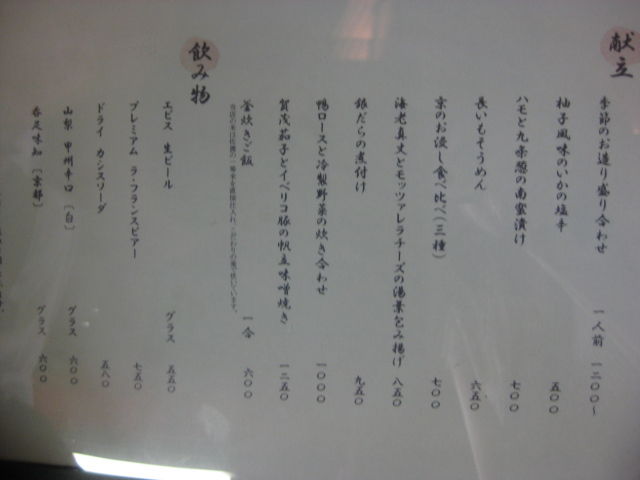 献立
季節のお造り盛り合わせ 一人前 一二〇〇~
柚子風味のいかの塩辛 五〇〇
ハモと九条葱の南蛮漬け 七〇〇
長いもそうめん 六五〇
京のお浸し食べ比べ(三種) 七〇〇
海老真丈とモッツァレラチーズの湯葉包み揚げ 八五〇
銀だらの煮付け 九五〇
鴨ロースと冷製野菜の炊き合わせ 一〇〇〇
賀茂茄子とイベリコ豚の帆立味噌焼き 一二五〇
釜炊きご飯 一合 六〇〇
飲み物
ヱビス 生ビール グラス 五五〇
プレミアム ラ・フランスビアー 七五〇
ドライ カシスソーダ 五八〇
山梨 甲州辛口 (白) グラス 六〇〇
呑足味知 (京都) グラス 六〇〇